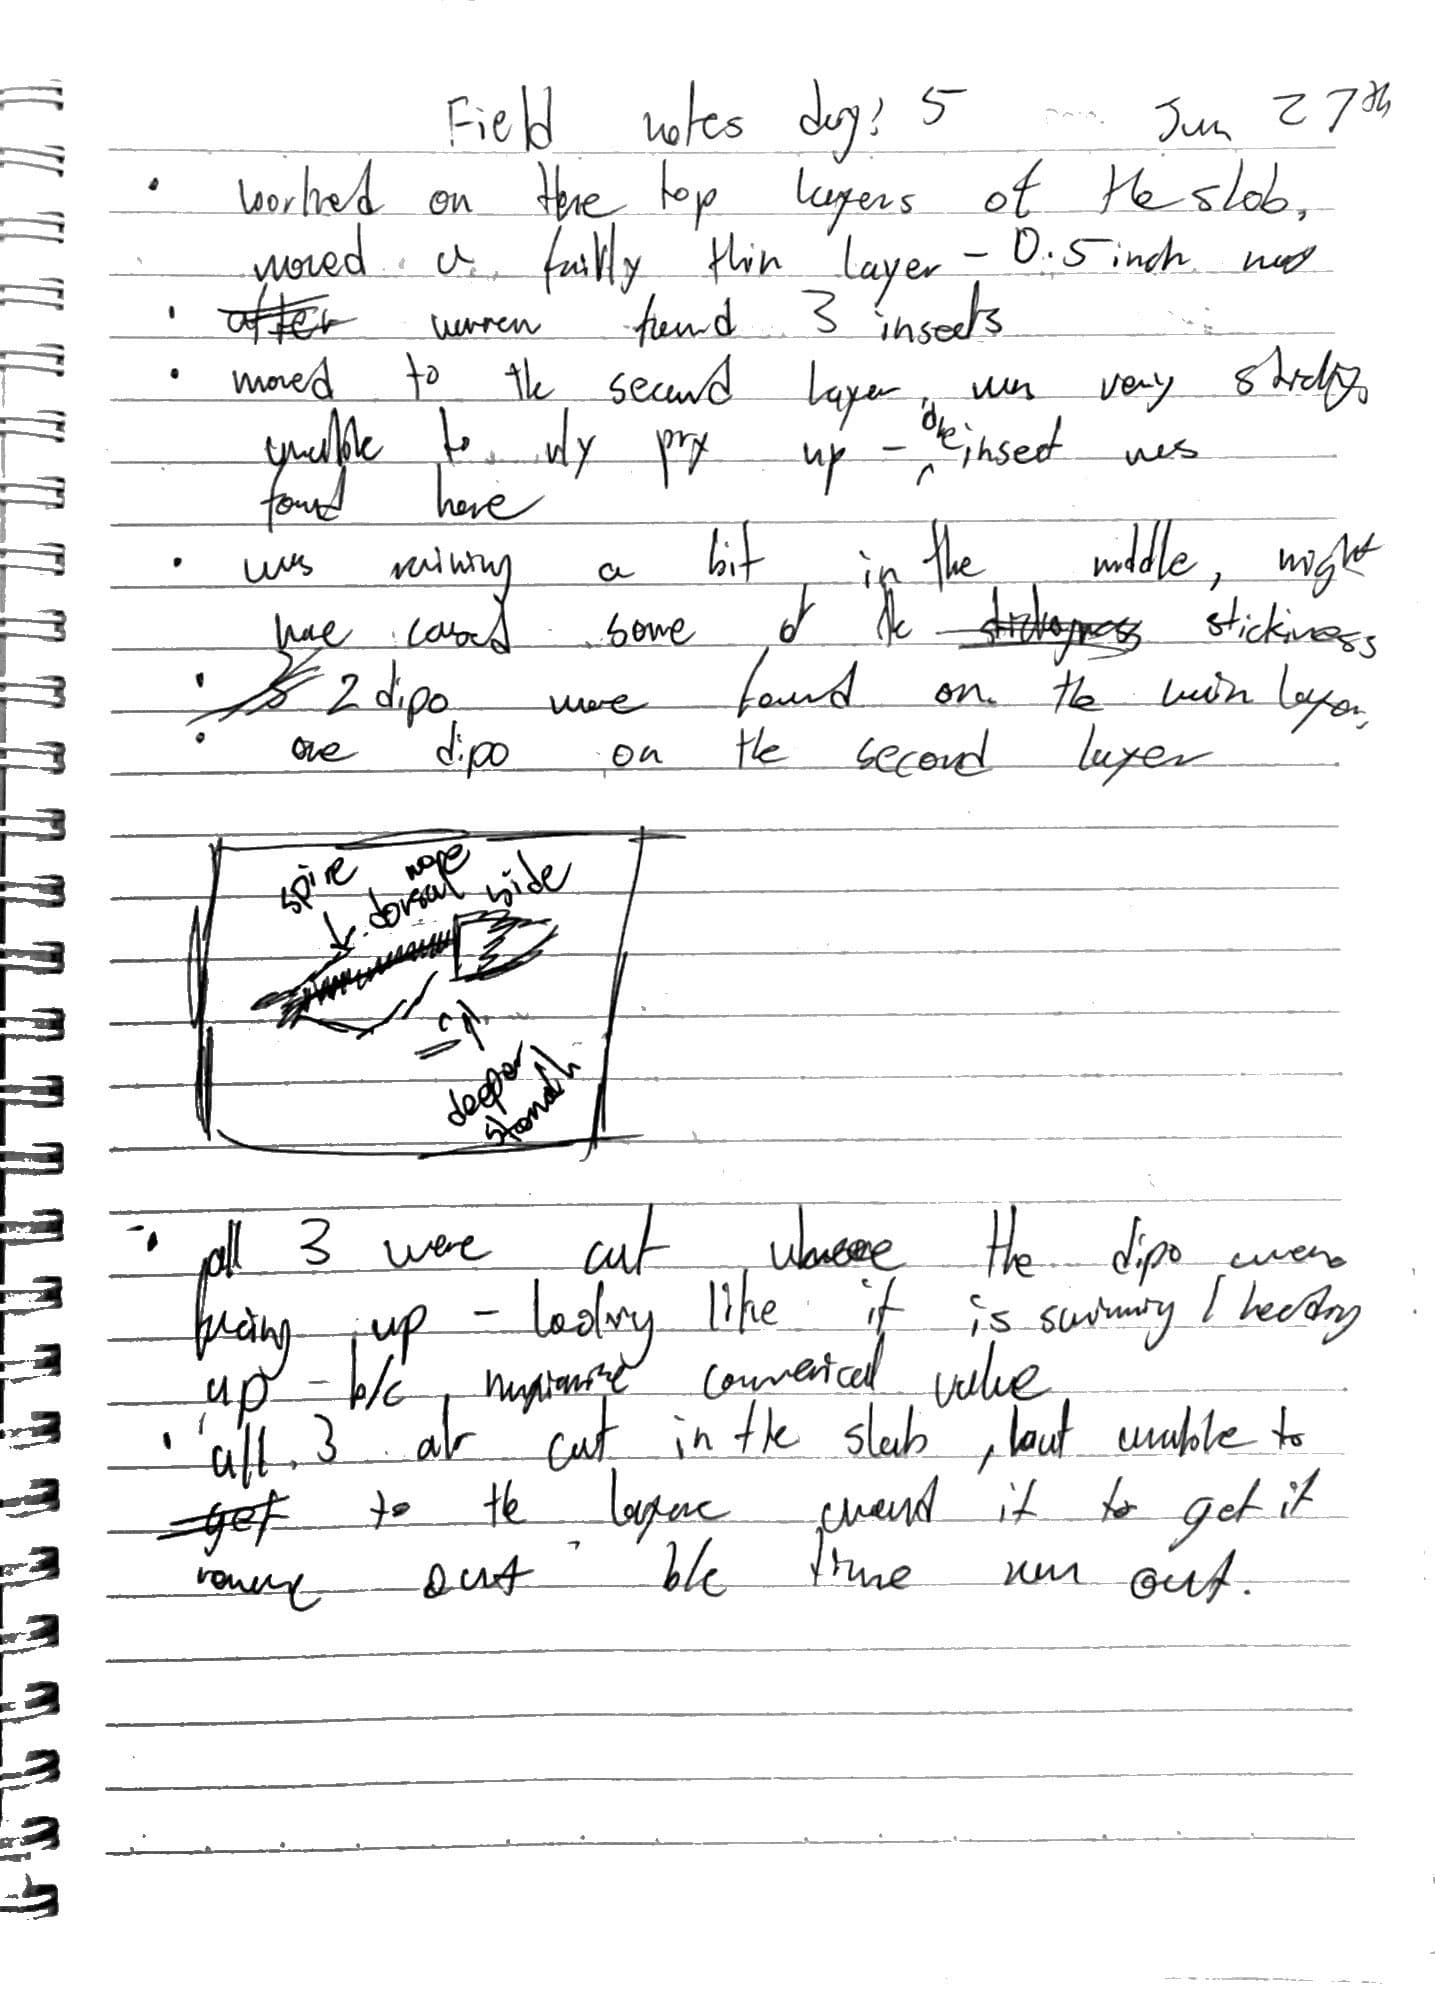 Field notes day: 5 Jun 27th
• worked on the top layers of the slob,
moved a fairly thin layer - 0.5 inch
• after warren found 3 insects
• moved to the second layer, was very sticky,
unable to pry up - one insect was
found here
• was raining a bit in the middle, might
have caused some of the stickiness
• 2 dipo were found on the main layer,
• one dipo on the second layer
spine nope
dorsal side
deeper
stomach
• all 3 were cut where the dipo were
facing up - looking like it is swimming / heading
up - b/c maximize commerical value
• all 3 are cut in the slab, but unable to
get to the layer around it to get it
out b/c time run out.